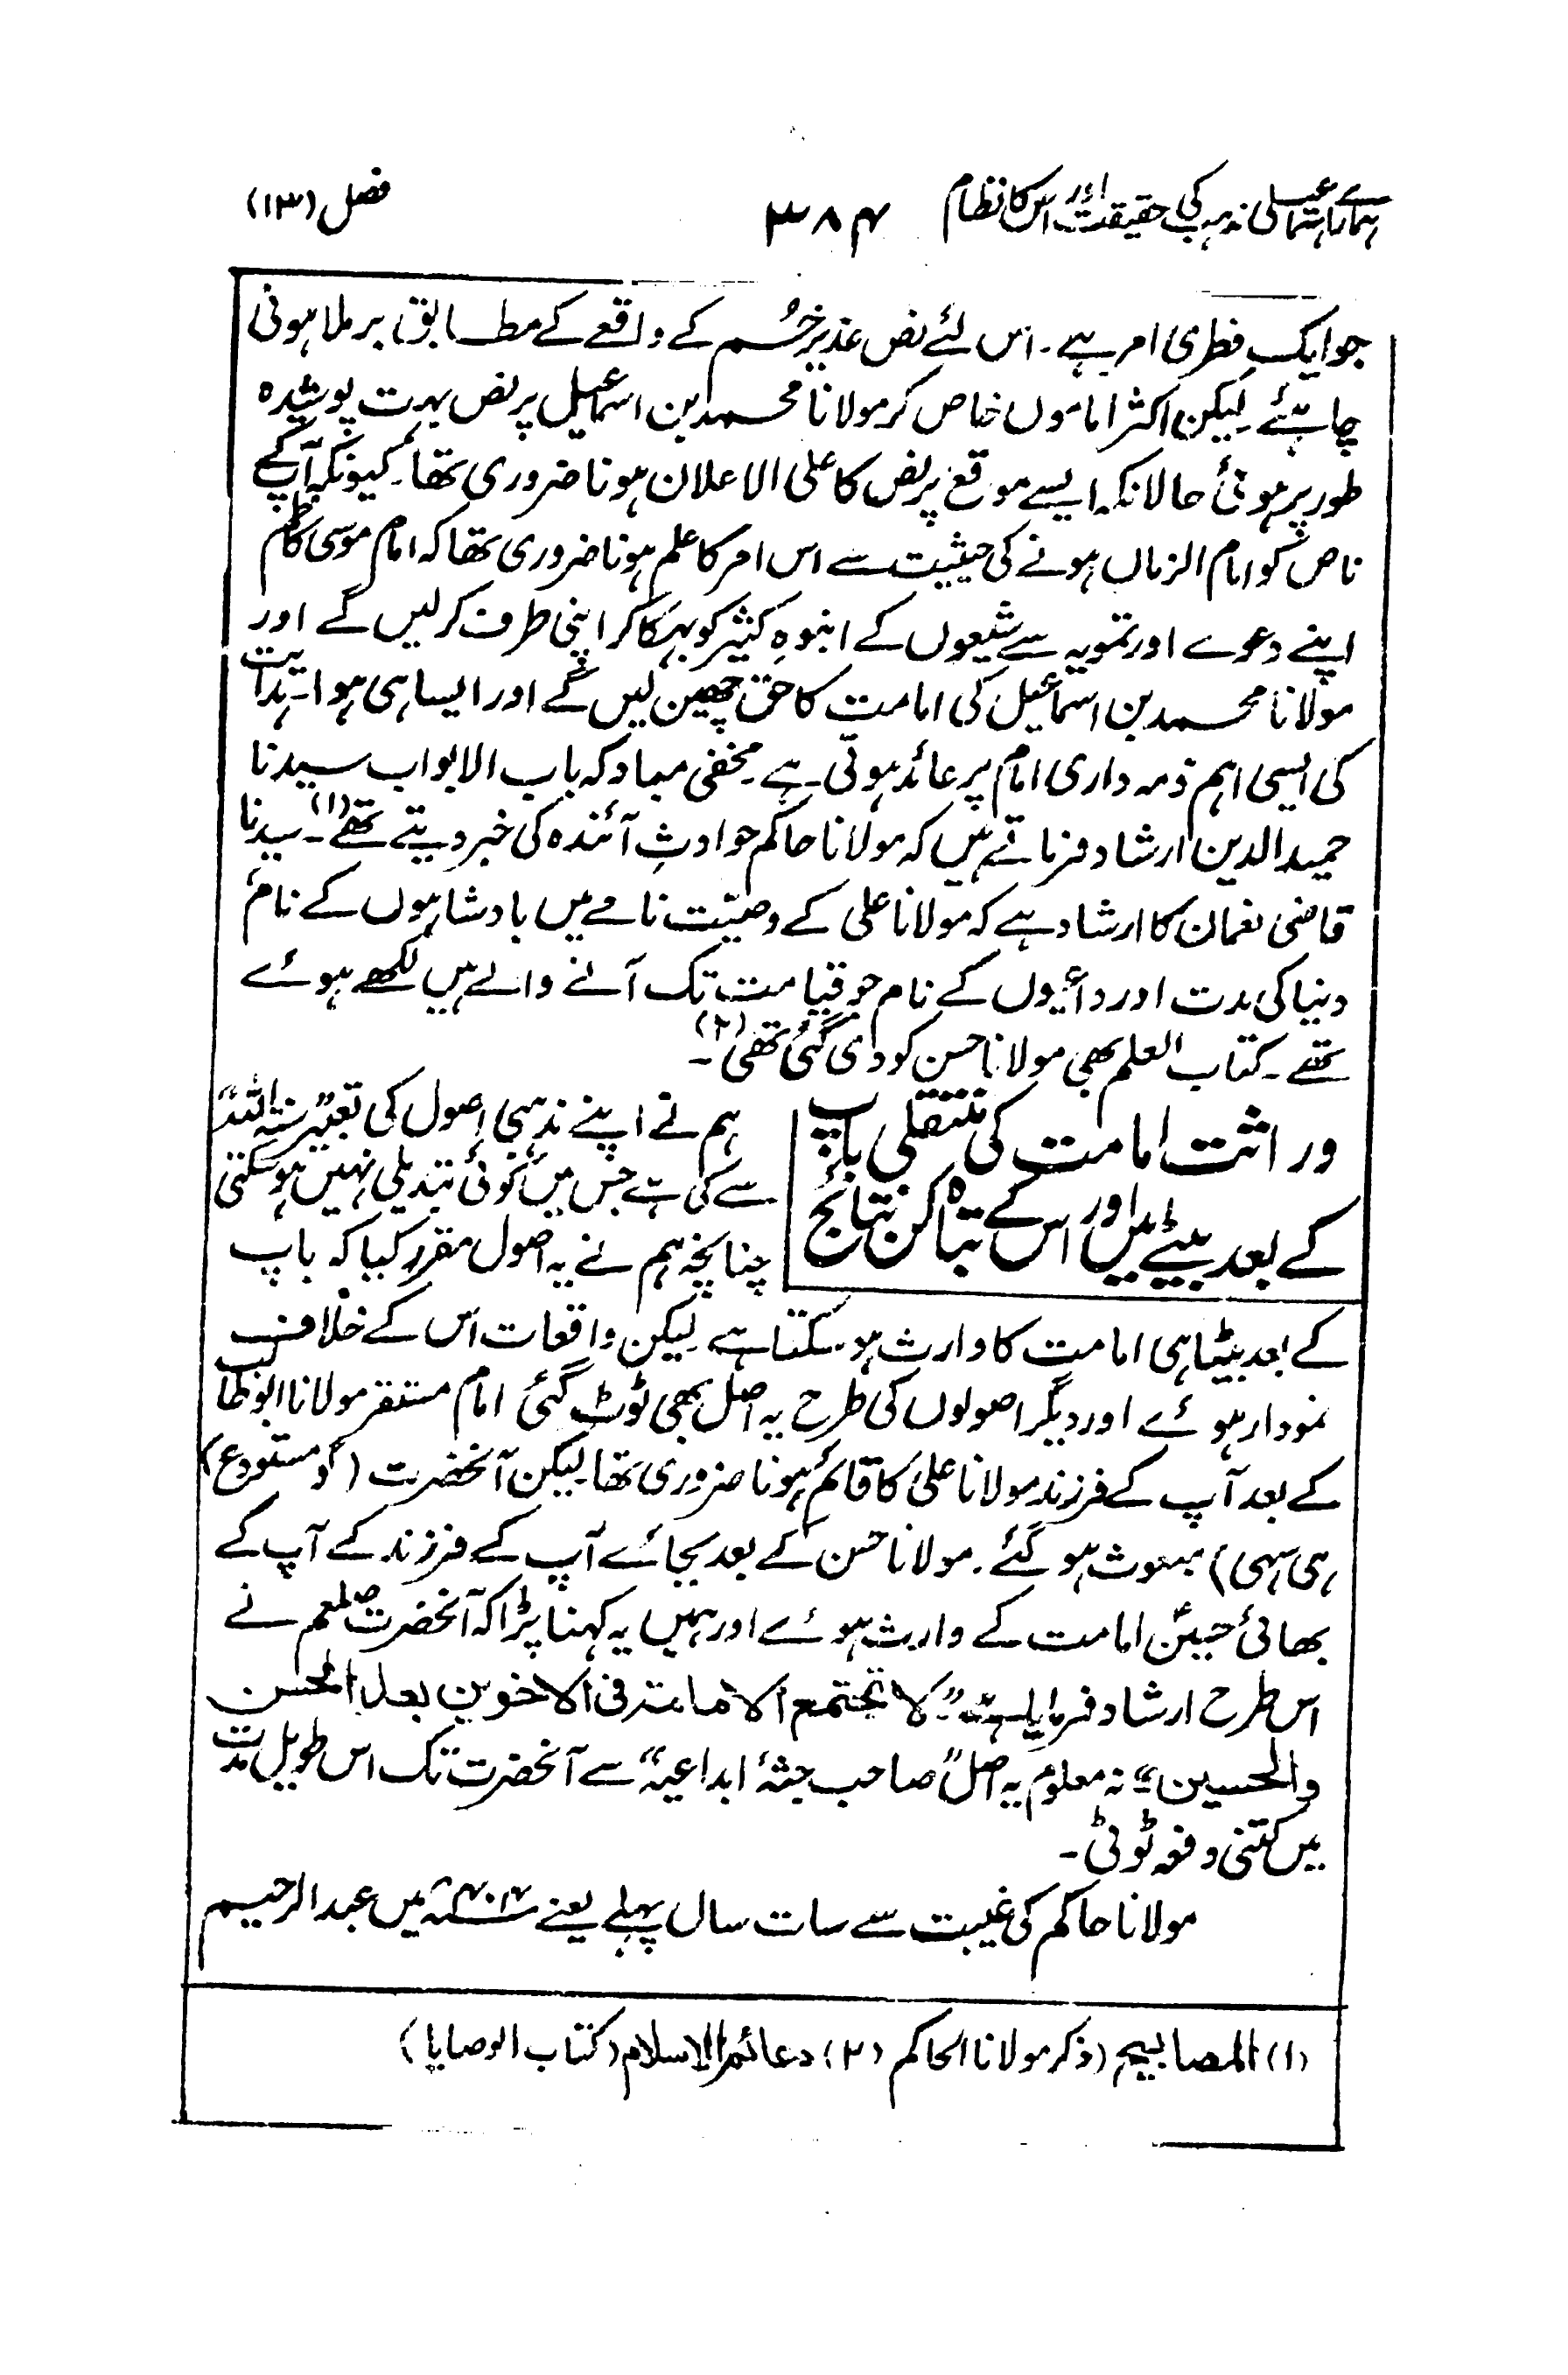 ہمارے اسماعیلی مذہب کی حقیقت اور اس کا نظام ۳۸۴ فصل (۱۳)
جو ایک فطری امر ہے۔ اس لئے نص غدیر خُم کے واقعے کے مطابق بر ملا ہونی
چاہئے لیکن اکثر اماموں خاص کر مولانا محمد بن اسماعیل پر نص بہت پوشیدہ
طور پر ہوئی حالانکہ ایسے موقع پر نص کا علی الاعلان ہونا ضروری تھا۔ کیونکہ آپ کے
ناص کو امام الزماں ہونے کی حیثیت سے اس امر کا علم ہونا ضروری تھا کہ امام موسی کاظم
اپنے دعوے اور تمویہ سے شیعوں کے انبوہِ کثیر کو بہکا کر اپنی طرف کر لیں گے اور
مولانا محمد بن اسماعیل کی امامت کا حق چھین لیں گے اور ایسا ہی ہوا۔ ہدایت
کی ایسی اہم ذمہ داری امام پر عائد ہوتی ہے۔ مخفی مبادکہ باب الابواب سیدنا
حمید الدین ارشاد فرماتے ہیں کہ مولانا حاکم حوادثِ آئندہ کی خبر دیتے تھے (۱)۔ سیدنا
قاضی نعمان کا ارشاد ہے کہ مولانا علی کے وصیّت نامے میں بادشاہوں کے نام
دنیا کی مدت اور داعیوں کے نام جو قیامت تک آنے والے ہیں لکھے ہوئے
تھے۔ کتاب العلم بھی مولانا حسن کو دی گئی تھی (۲)۔
وراثت امامت کی منتقلی باپ
کے بعد بیٹے میں اور اس کے تباہ کن نتائج
ہم نے اپنے مذہبی اصول کی تعبیر "سنۃ اللہ"
سے کی ہے جس میں کوئی تبدیلی نہیں ہو سکتی
چنانچہ ہم نے یہ اصول مقرر کیا کہ باپ
کے بعد بیٹا ہی امامت کا وارث ہو سکتا ہے لیکن واقعات اس کے خلاف
نمودار ہوئے اور دیگر اصولوں کی طرح یہ اصل بھی ٹوٹ گئی امام مستقر مولانا ابوطالب
کے بعد آپ کے فرزند مولانا علی کا قائم ہونا ضروری تھا لیکن آنحضرت (گو مستودع
ہی سہی) مبعوث ہو گئے۔ مولانا حسن کے بعد بجائے آپ کے فرزند کے آپ کے
بھائی حسینؑ امامت کے وارث ہوئے اور ہمیں یہ کہنا پڑا کہ آنحضرت صلعم نے
اس طرح ارشاد فرمایا ہے:۔ "لا تجتمع الامامة فی الاخوین بعد الحسن
والحسین" نہ معلوم یہ اصل "صاحب جثۂ ابداعیہ" سے آنحضرت تک اس طویل مدت
میں کتنی دفعہ ٹوٹی۔
مولانا حاکم کی غیبت سے سات سال پہلے یعنے ۴۰۴ھ میں عبد الرحیم
(۱) المصابیح (ذکر مولانا الحاکم (۲) دعائم الاسلام (کتاب الوصایا)